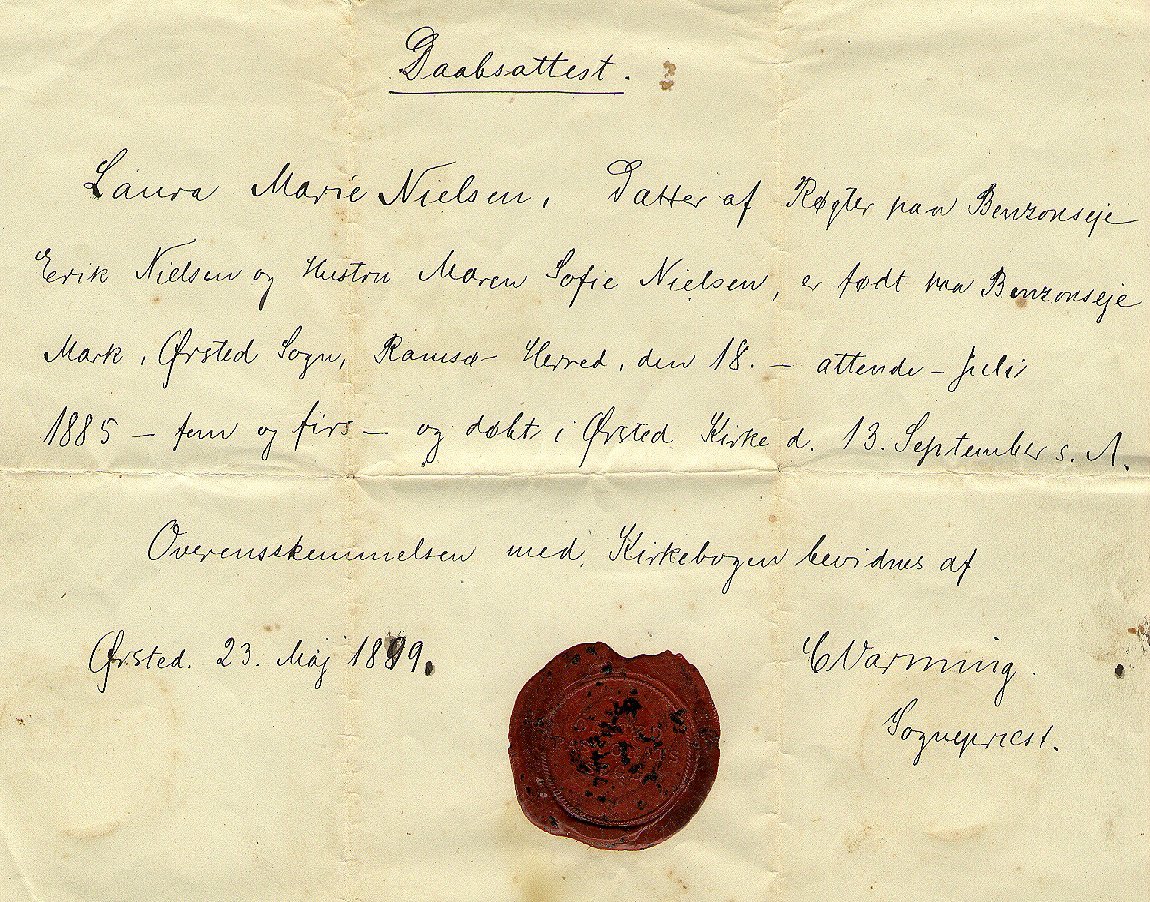 Daabsattest.
Laura Marie Nielsen, Datter af Røgter paa Benzonseje
Erik Nielsen og Hustru Maren Sofie Nielsen, er født paa Benzonseje
Mark, Ørsted Sogn, Ramsø Herred, den 18. – attende – Juli
1885 – fem og firs – og døbt i Ørsted Kirke d. 13. September s. A.
Overensstemmelsen med Kirkebogen bevidnes af
Ørsted. 23. Maj 1899.
CVarming.
Sognepræst.